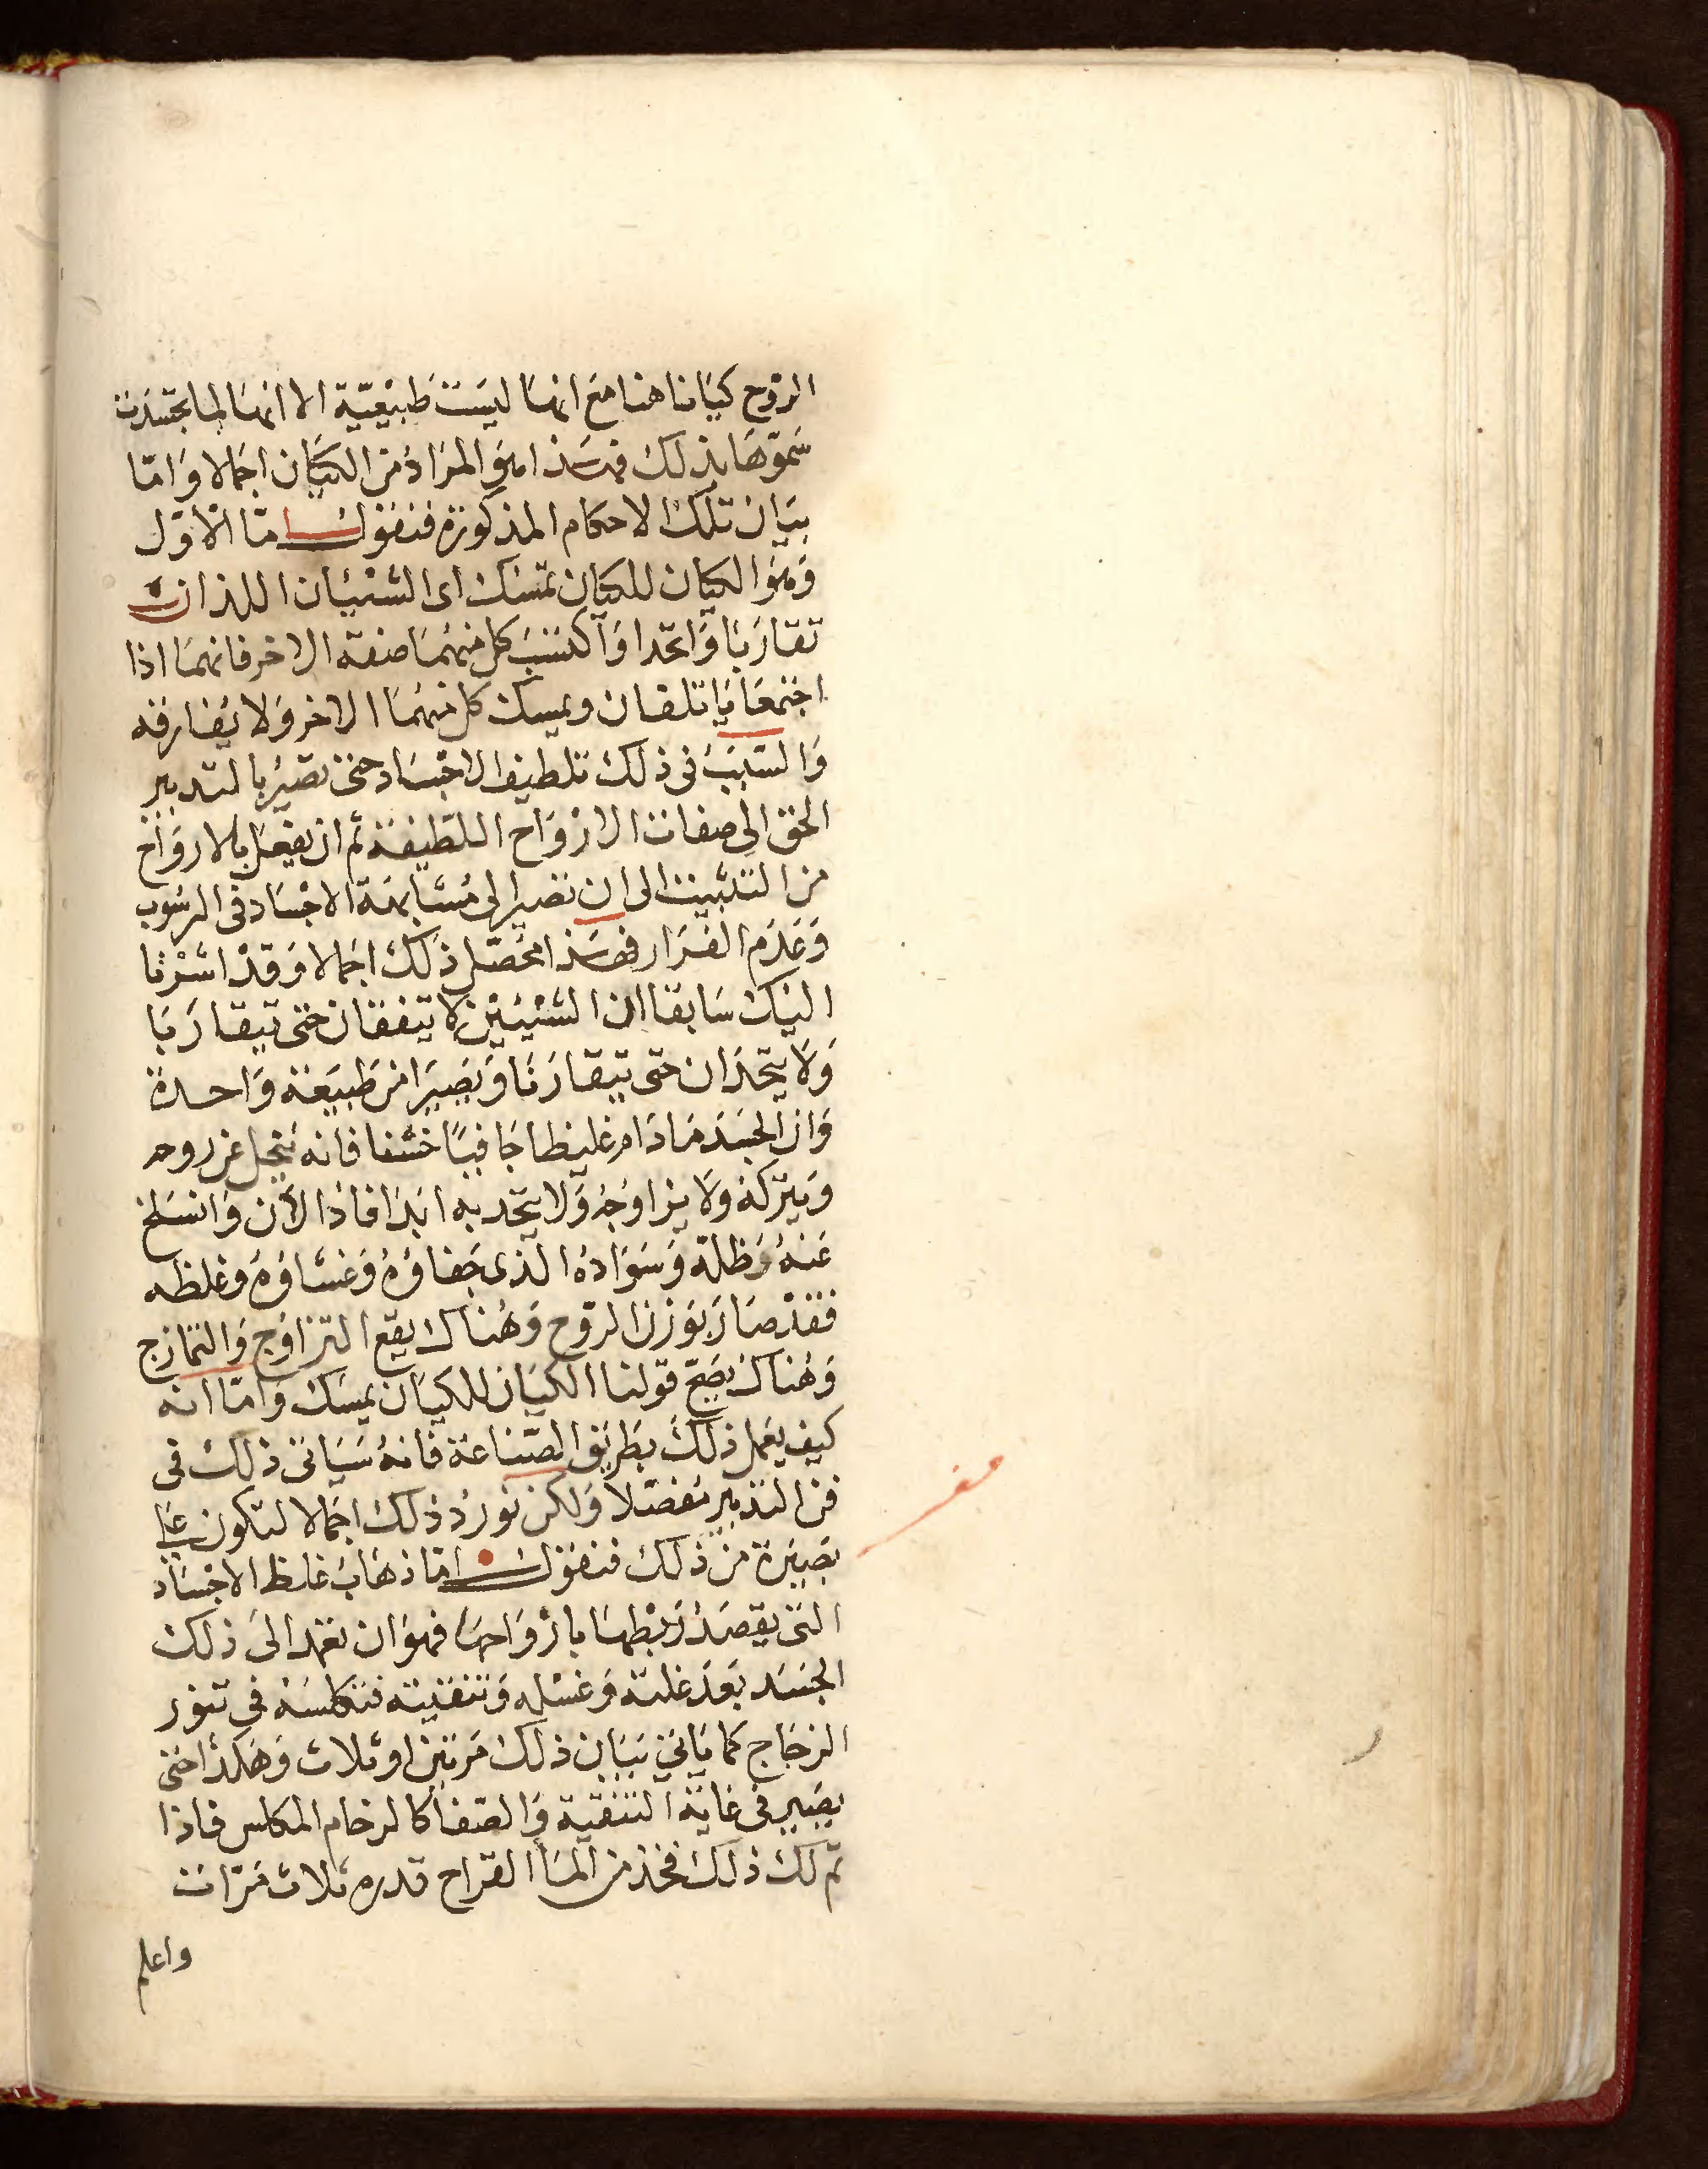 الروح كيَانا هنا مَع انهَا ليسَت طَبيْعيّة الا انهَا لما تجسّدت
سَموّهَا بذلك فهَذا هوَ المرَادُ من الكيَان اجمالا وَامّا
بيَان تلك الاحكام المذكورة فنقول امّا الاوّل
وَهوَ الكيَان للكيَان تمسك اى الشيْئان اللذان
تقارَبَا وَاتحدا وَاكتسَبَ كل منهمَا صفة الاخر فانهمَا اذا
اجتمعَا يَاتلفان ويمسك كل منهمَا الاخر وَلا يُفارقه
وَالسّبَبُ فى ذلك تلطيف الاجْسَاد حتى تصيرُ بالتدبير
الحق الى صفات الارْوَاح اللطيفة ثم ان يفعَل بالارواح
من التثبيت الى ان تصير الى مُشابهَة الاجْسَاد فى الرسُوب
وَعَدَم الفرَار فهَذا محَصّل ذلك اجمالا وَقدْ اشرْنا
اليَك سَابقا ان الشيْئيْن لا يتفقان حَتى يتقارَبَا
وَلا يتّحدَان حتى يتقارَنَا وَيَصِيرَا من طَبيعَة وَاحدة
وَان الجسَد مَادَام غليظا جَافيًا خشنا فانه يَنحل عن روحه
وَيتركه وَلا يزاوجُهُ وَلا يتحد به ابَدا فاذا لأن وَانسَلخ
عَنهُ وَظله وَسَوَادُه الذى جَفاؤهُ وَغشاؤهُ وغلظه
فقدْ صَارَ بوَزن الروّح وَهُناك يقع التزاوُج وَالتمازج
وَهُناك يصَحّ قولنا الكيَان للكيَان يمسَك وَامّا انه
كيف يعَمل ذلك بطَريق الصّناعَة فانهُ سَيَاتى ذلك فى
فن التدبير مُفصّلا وَلكن نورُد ذلك اجمالا لتكون على
بصَيرَة من ذلك فنقول امّا ذهَابُ غلظ الاجْسَاد
التى يقصَدُ رَبْطهَا بارْوَاحهَا فهوَ ان تعَمد الى ذلك
الجسَد بعَدَ غلبة وَغسْله وَتنقيته فتكلسَهُ فى تنور
الزجَاج كما يَاتى بيَان ذلك مَرتين او ثلاث وَهَكذا حَتى
يصَير فى غاية التنقية وَالصّفا كالرخام المكلس فاذا
تم لك ذلك فخذ من المَا القراح قدره ثلاث مَرّات
واعلم